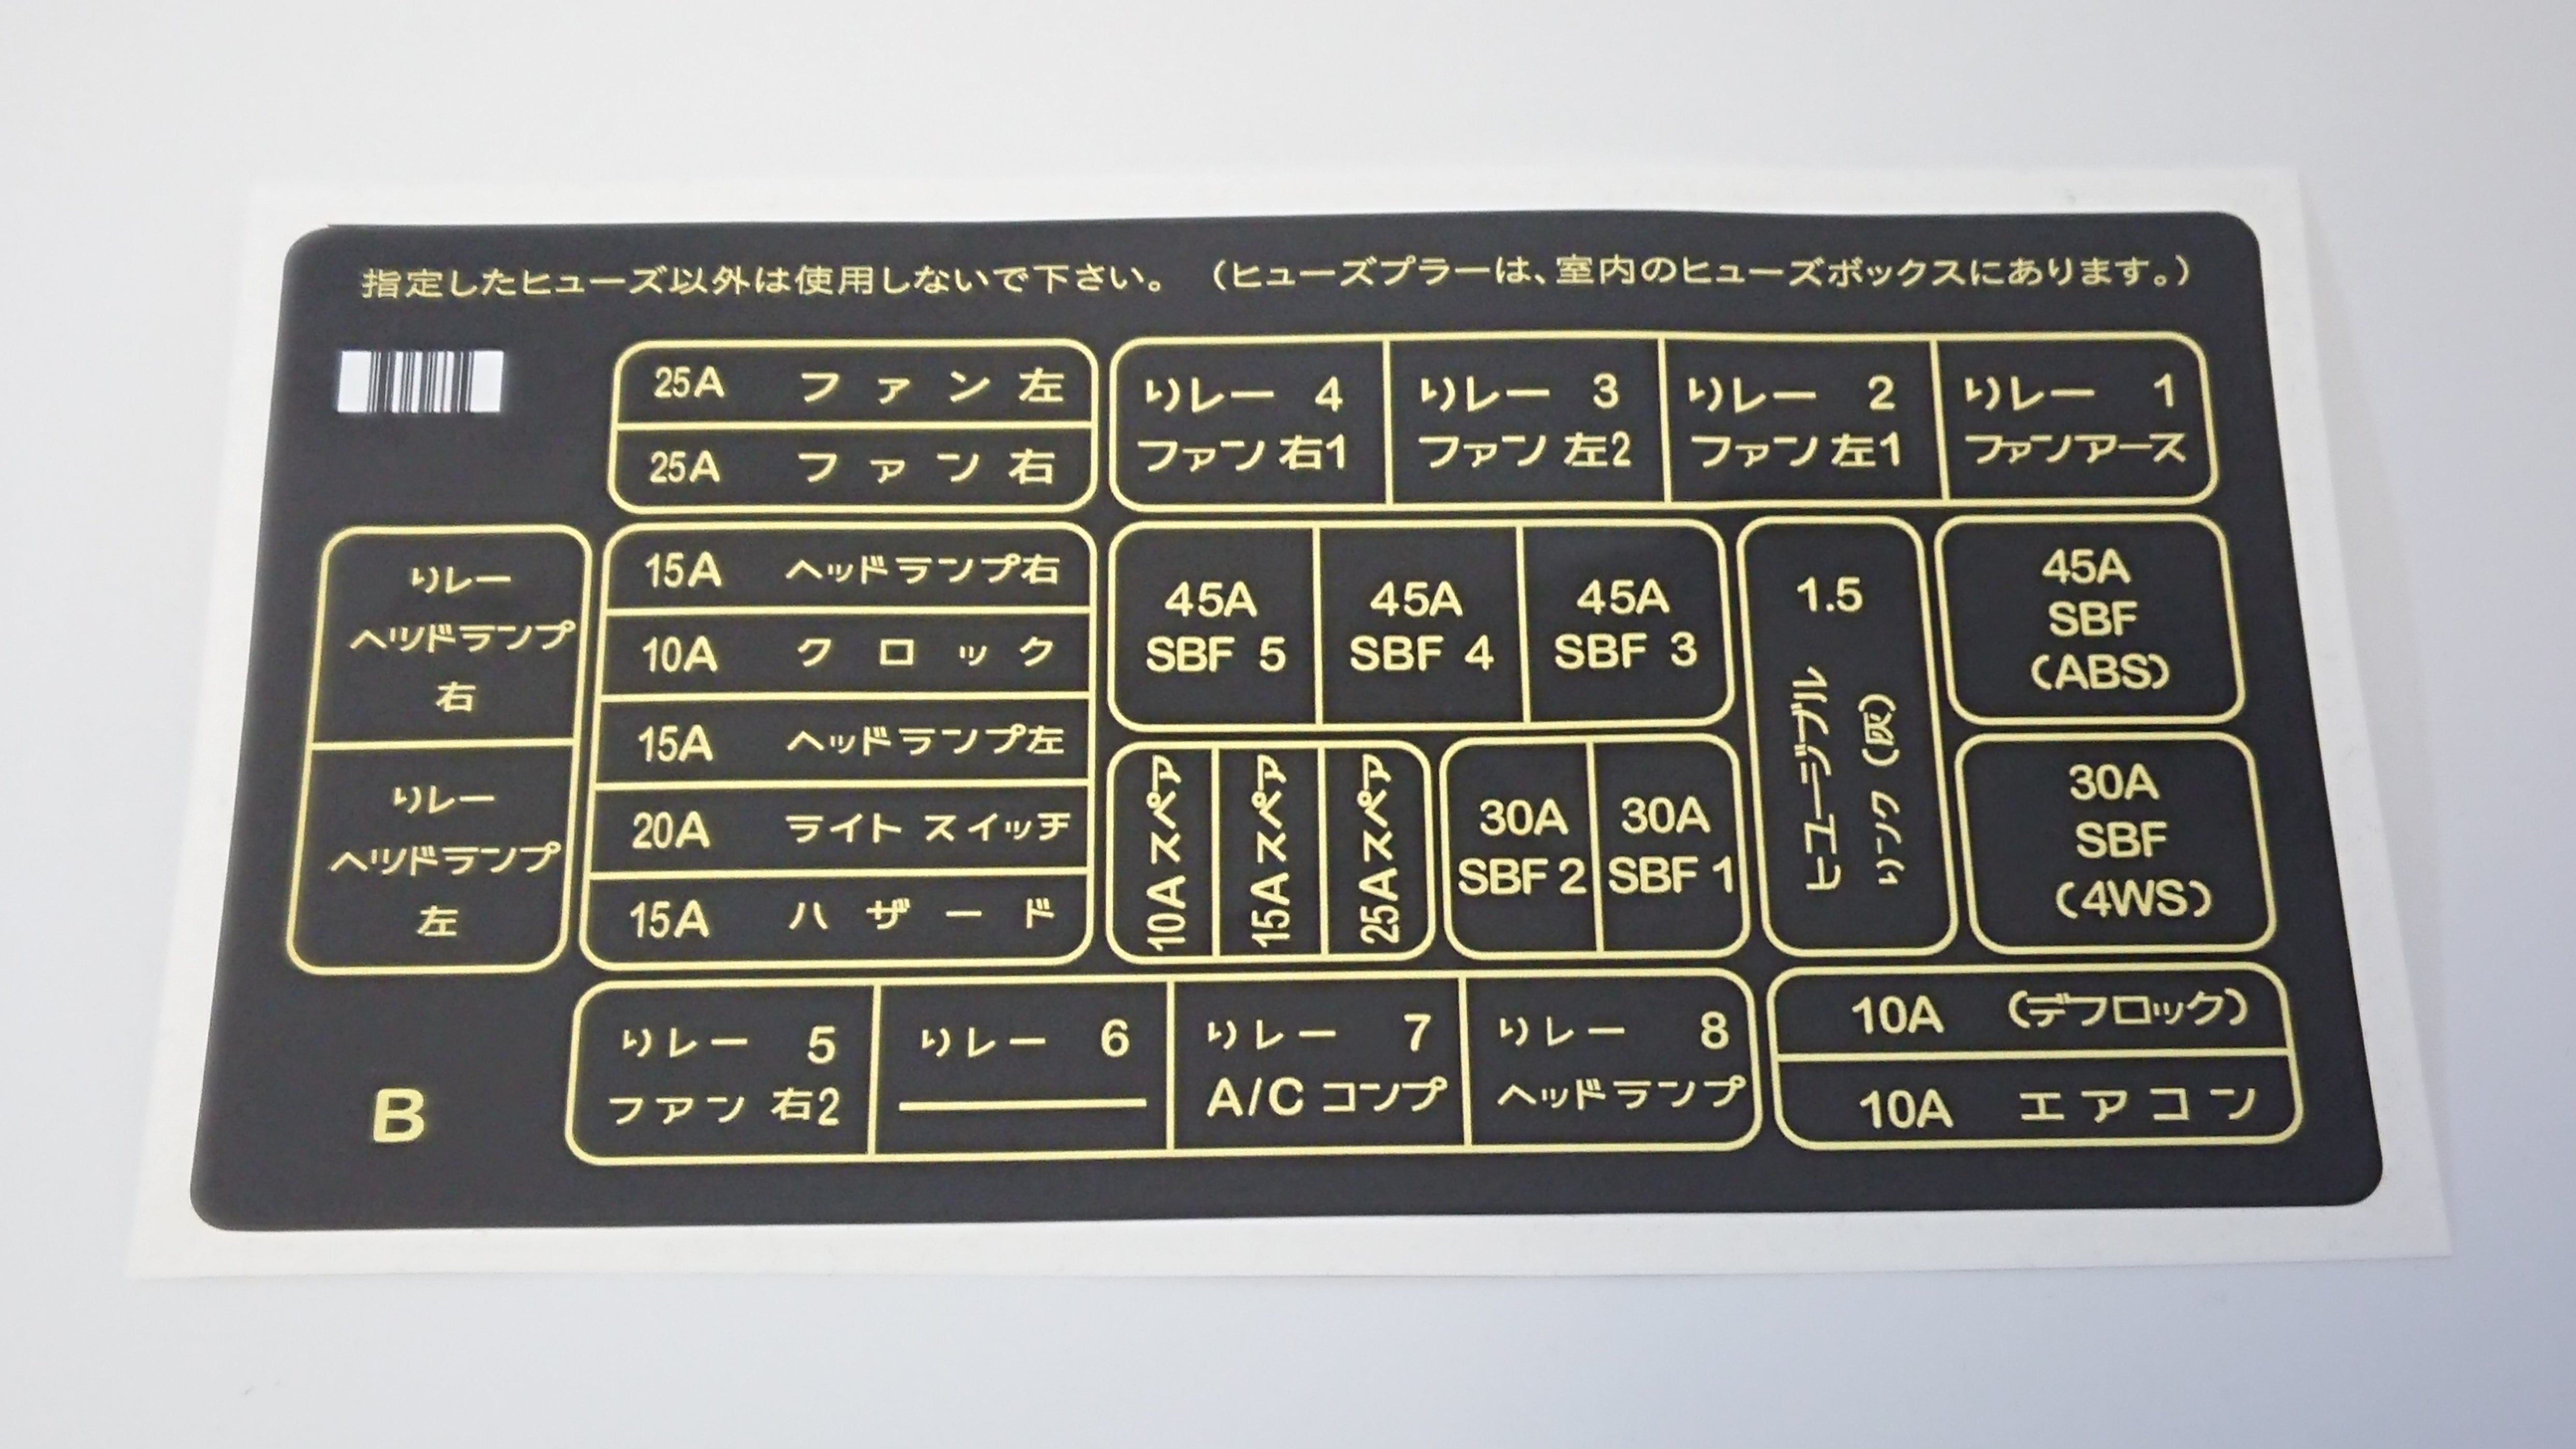 指定したヒューズ以外は使用しないで下さい。 (ヒューズプラーは、室内のヒューズボックスにあります。)
25A ファン左
25A ファン右
りレー 4
ファン 右1
りレー 3
ファン 左2
りレー 2
ファン 左1
りレー 1
ファンアース
りレー
ヘッドランプ
右
りレー
ヘッドランプ
左
15A ヘッドランプ右
10A クロック
15A ヘッドランプ左
20A ライト スイッチ
15A ハザード
45A
SBF 5
45A
SBF 4
45A
SBF 3
10Aスペア
15Aスペア
25Aスペア
30A
SBF 2
30A
SBF 1
1.5
ヒュージブル
りンク (灰)
45A
SBF
(ABS)
30A
SBF
(4WS)
B
りレー 5
ファン 右2
りレー 6
りレー 7
A/C コンプ
りレー 8
ヘッドランプ
10A (デフロック)
10A エアコン